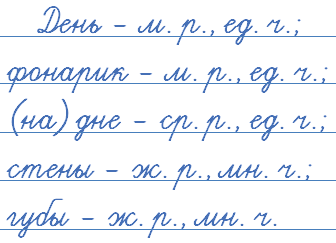 День – м. р., ед. ч.;
фонарик – м. р., ед. ч.;
(на) дне – ср. р., ед. ч.;
стены – ж. р., мн. ч.;
губы – ж. р., мн. ч.